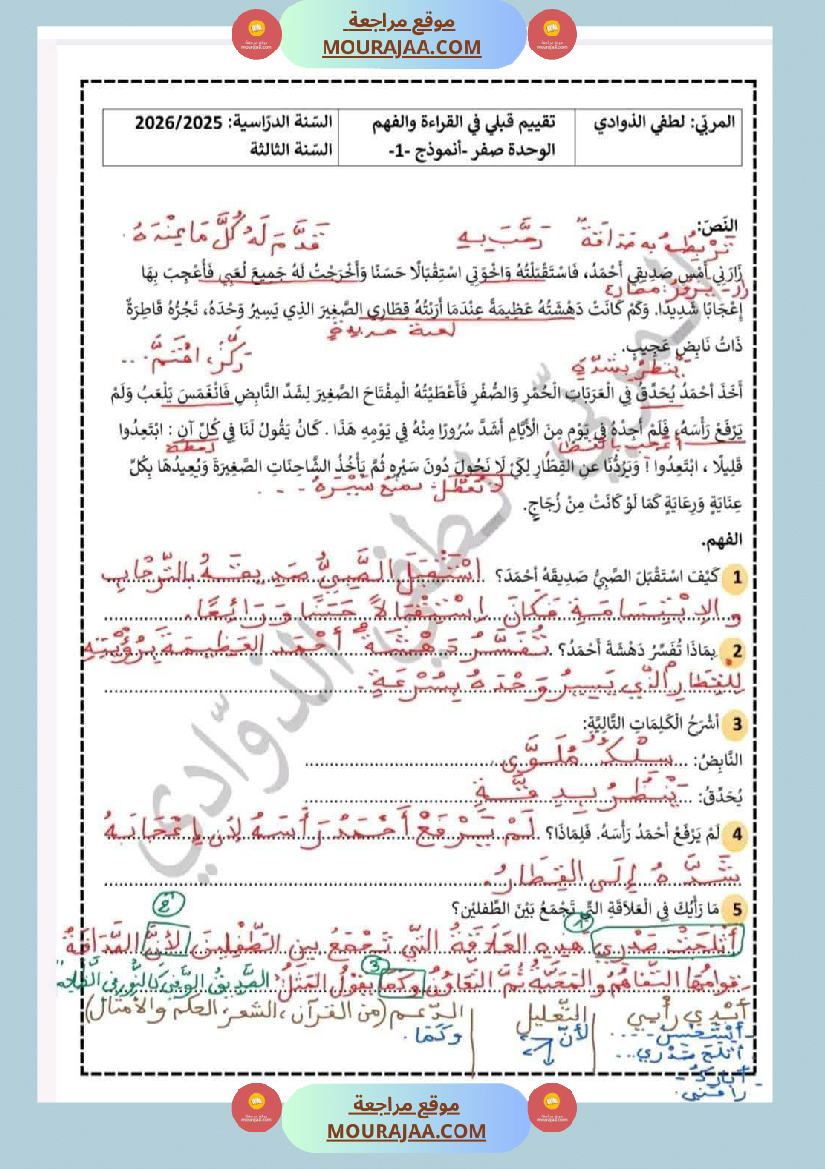 موقع مراجعة
MOURAJAA.COM
المربّي: لطفي الذوادي
تقييم قبلي في القراءة والفهم
الوحدة صفر -أنموذج -1-
السّنة الدرّاسية: 2026/2025
السّنة الثالثة
النّصّ:
تَرْبِطُهُ بِهِ صَدَاقَةٌ
رَحَّبَ بِهِ
قَدَّمَ لَهُ كُلَّ مَا عِنْدَهُ
زَارَنِي أَمْسِ صَدِيقِي أَحْمَدُ، فَاسْتَقْبَلَتْهُ وَاخْوَتِي اسْتِقْبَالًا حَسَنًا وَأَخْرَجْتُ لَهُ جَمِيعَ لُعَبِي فَأُعْجِبَ بِهَا
إِعْجَابًا شَدِيدًا. وَكَمْ كَانَتْ دَهْشَتُهُ عَظِيمَةً عِنْدَمَا أَرَيْتُهُ قِطَارِي الصَّغِيرَ الذِي يَسِيرُ وَحْدَهُ، تَجُرُّهُ قَاطِرَةٌ
لعبة حديدية
ذَاتُ نَابِضٍ عَجِيبٍ.
ينظر بشدّة
ركّز، اهتمّ...
أَخَذَ أَحْمَدُ يُحَدِّقُ فِي الْعَرَبَاتِ الْحُمْرِ وَالصُّفْرِ فَأَعْطَيْتُهُ الْمِفْتَاحَ الصَّغِيرَ لِشَدِّ النَّابِضِ فَانْغَمَسَ يَلْعَبُ وَلَمْ
يَرْفَعْ رَأْسَهُ، فَلَمْ أَجِدْهُ فِي يَوْمٍ مِنَ الْأَيَّامِ أَشَدَّ سُرُورًا مِنْهُ فِي يَوْمِهِ هَذَا . كَانَ يَقُولُ لَنَا فِي كُلِّ آنٍ : ابْتَعِدُوا
لحظة
قَلِيلًا ، ابْتَعِدُوا ! وَيَرُدُّنَا عَنِ القِطَارِ لِكَيْ لَا نَحُولَ دُونَ سَيْرِهِ ثُمَّ يَأْخُذُ الشَّاحِنَاتِ الصَّغِيرَةَ وَيُعِيدُهَا بِكُلِّ
لا نعطّل: نمنع سيره
عِنَايَةٍ وَرِعَايَةٍ كَمَا لَوْ كَانَتْ مِنْ زُجَاجٍ.
الفهم.
1 كَيْفَ اسْتَقْبَلَ الصَّبِيُّ صَدِيقَهُ أَحْمَدَ؟ اسْتَقْبَلَ الصَّبِيُّ صَدِيقَهُ بِالتِّرْحَابِ
و الاِبْتِسَامَةِ فَكَانَ اِسْتِقْبَالاً حَسَنًا وَ رَائِعًا.
2 بِمَاذَا تُفَسِّرُ دَهْشَةَ أَحْمَدُ؟ تُفَسَّرُ دَهْشَةُ أَحْمَد العَظِيمَة بِرُؤْيَتِهِ
لِلقِطَارِ الّذِي يَسِيرُ وَحْدَهُ بِسُرْعَةٍ.
3 أَشْرَحُ الْكَلِمَاتِ التَّالِيَّةِ:
النَّابِضُ: سِلْكٌ مُلَوَّى
يُحَدِّقُ: يَنْظُرُ بِدِقَّةٍ
4 لَمْ يَرْفَعْ أَحْمَدُ رَأْسَهُ. فَلِمَاذَا؟ لَمْ يَرْفَعْ أَحْمَدُ رَأْسَهُ لأن إعْجَابَهُ
شَدَّهُ إِلَى القِطَارِ.
5 مَا رَأْيُكَ فِي الْعَلَاقَةِ التِّي تَجْمَعُ بَيْنَ الطِّفْلَيْنِ؟
أَثْلَجَتْ صَدْرِي هذِهِ العَلَاقَةُ الَّتِي تَجْمَعُ بين الطِّفْلينِ لأنَّ الصَّدَاقَةَ
قوامُهَا التَّفَاهُم و المَحَبَّة ثُمَّ التَّعَاوُن وكما يقُولُ المَثَلُ: الصَّدِيقُ الوَفِيّ كالنُّورِ في
أُبْدِي رأيي
التّعليل
الدّعم (من القرآن، الشعر، الحكم والأمثال)
- أستحسن
لأنّ
وكما.
- أثلج صدري...
- أبارك
راقني
موقع مراجعة
MOURAJAA.COM